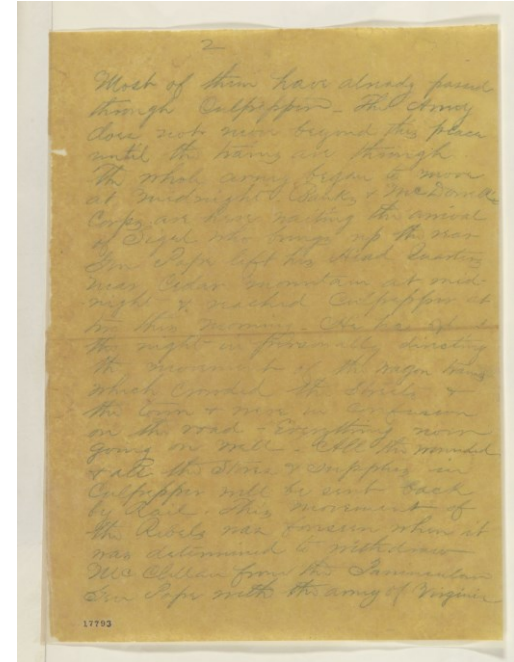 2
Most of them have already passed
through Culpepper - The Army
does not move beyond this place
until the trains are through.
The whole army began to move
at midnight. Banks & McDowells
Corps are here waiting the arrival
of Sigel who brings up the rear
Gen Pope left his Head Quarters
near Cedar mountain at mid
night & reached Culpepper at
this morning. He has
the night in personally directing
the movements of the wagon trains
which crowded the streets &
the town & were in confusion
on the road - Everything now
going on well. - All the wounded
& all the stores & supplies in
Culpepper will be sent back
by Rail. This movement of
the Rebels was foreseen when it
was determined to withdraw
McClellan from the Peninsula
Gen Pope with the army of Virginia
17793